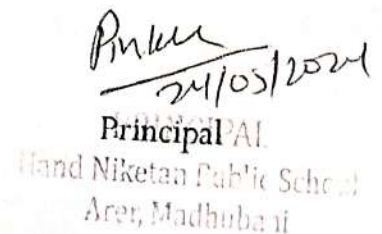 Pinku
24/05/2024
Principal
PRINCIPAL
Anand Niketan Public School
Arer, Madhubani